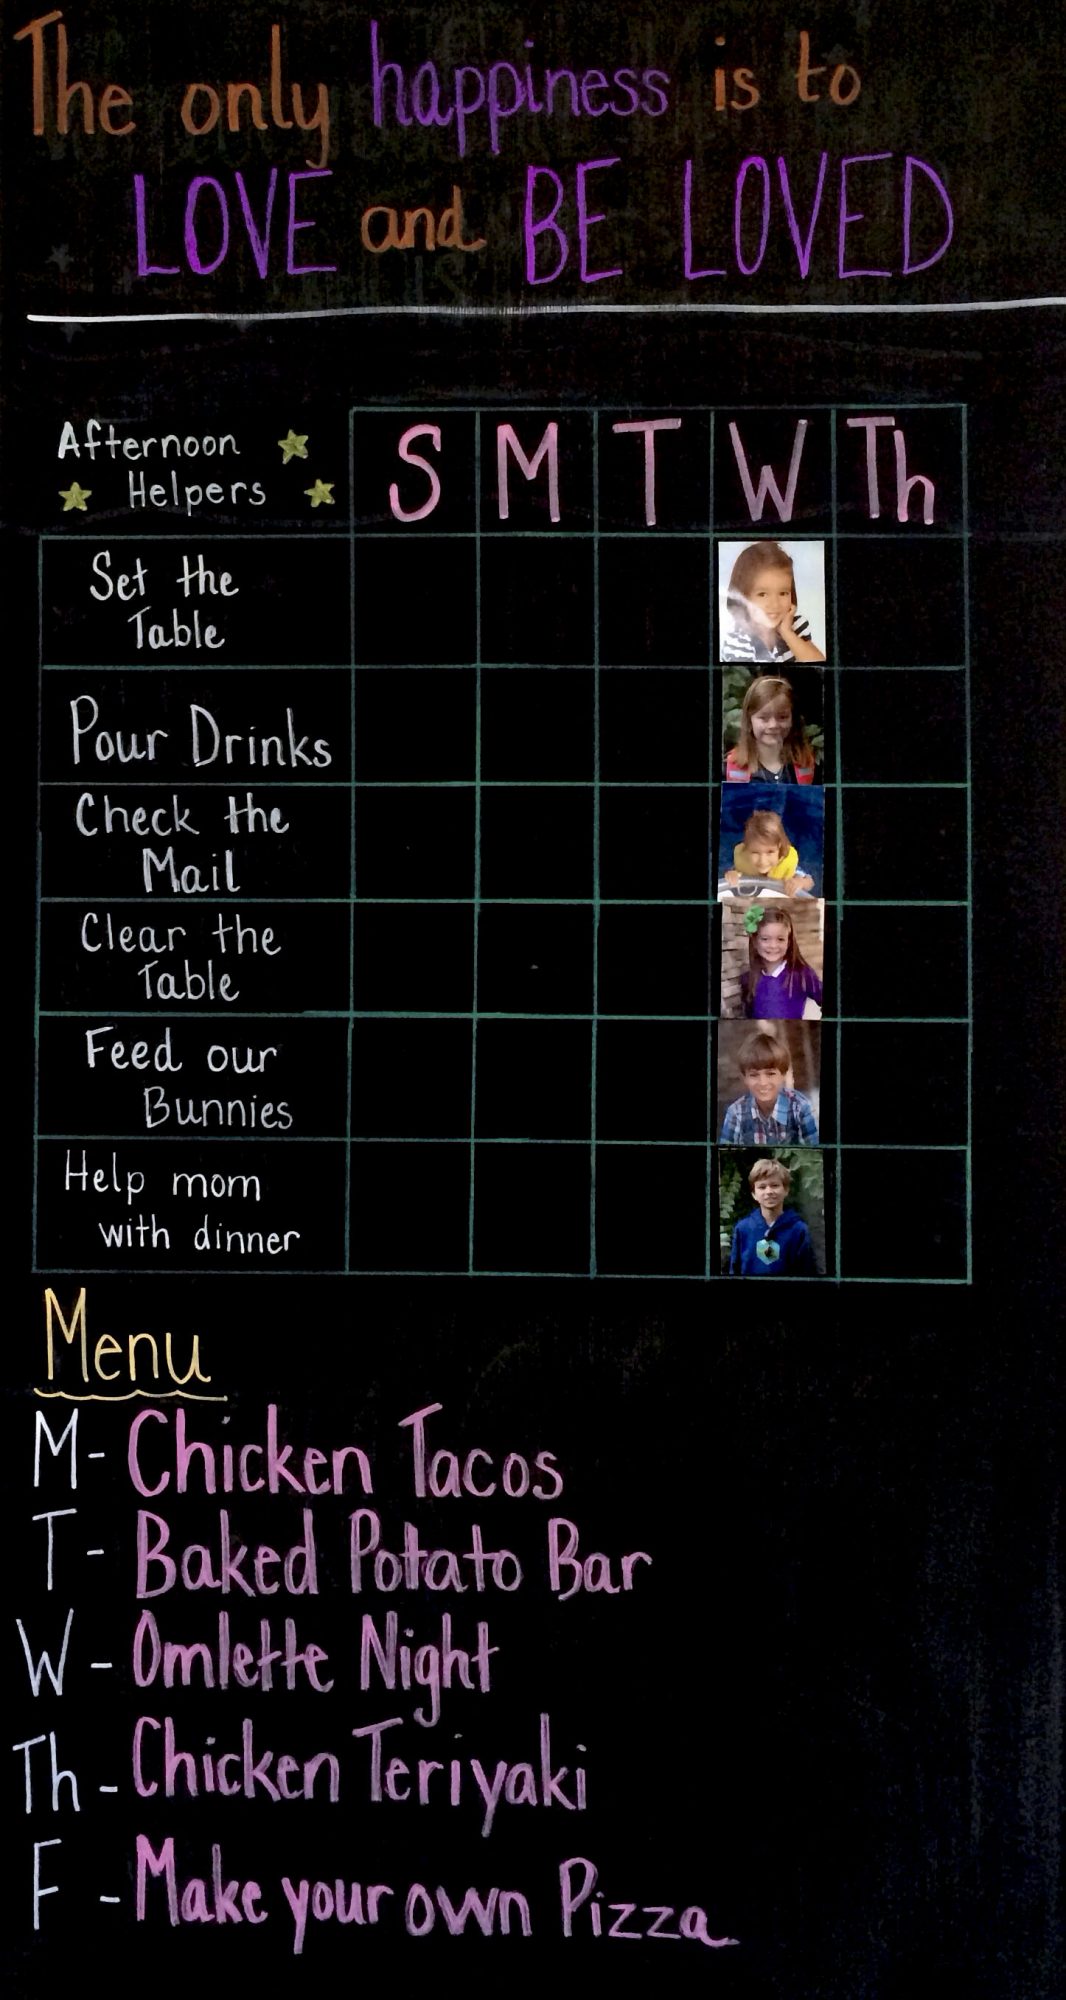 The only happiness is to
LOVE and BE LOVED
Afternoon
Helpers
S M T W Th
Set the
Table
Pour Drinks
Check the
Mail
Clear the
Table
Feed our
Bunnies
Help mom
with dinner
Menu
M- Chicken Tacos
T- Baked Potato Bar
W - Omlette Night
Th - Chicken Teriyaki
F - Make your own Pizza